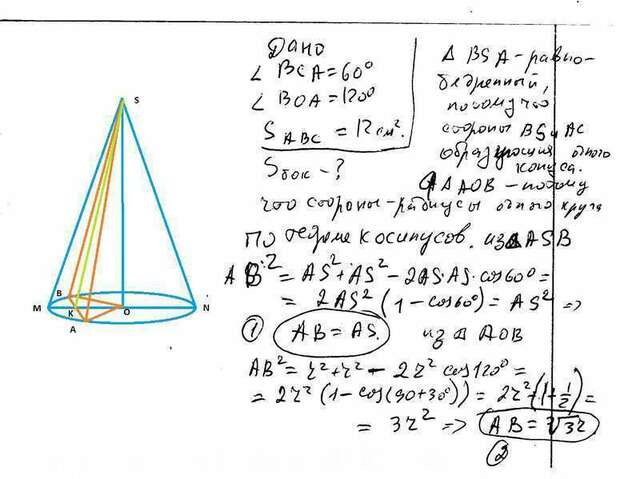 S
B
K
M
O
N
A
Дано
∠ BCA = 60°
∠ BOA = 120°
S ABC = 12 см².
Sбок - ?
Δ BSA - равно-
бедренный,
потому что
стороны BS и AC
образующия одного
конуса.
Δ AOB - потому
что стороны - радиусы одного круга
По теореме косинусов. из Δ ASB
AB² = AS² + AS² - 2AS·AS·cos60° =
= 2AS² (1 - cos60°) = AS² =>
① AB = AS. из Δ AOB
AB² = r² + r² - 2r² cos120° =
= 2r² (1 - cos(90+30°)) = 2r² (1+1/2) =
= 3r² => AB = √3r
②